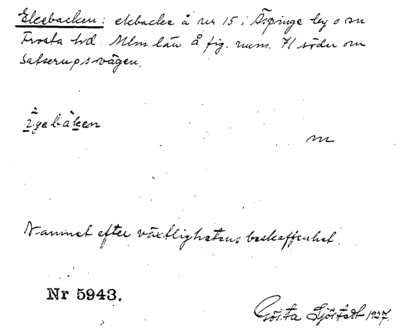 Ekebacken: ekbacke å nr 15 i Äspinge by o sn
Frosta hd. Mlm län å fig. num. 71 söder om
Satserupsvägen.
ägebàken
m
Namnet efter växtlighetens beskaffenhet.
Nr 5943.
Gösta Sjöstedt 1927.